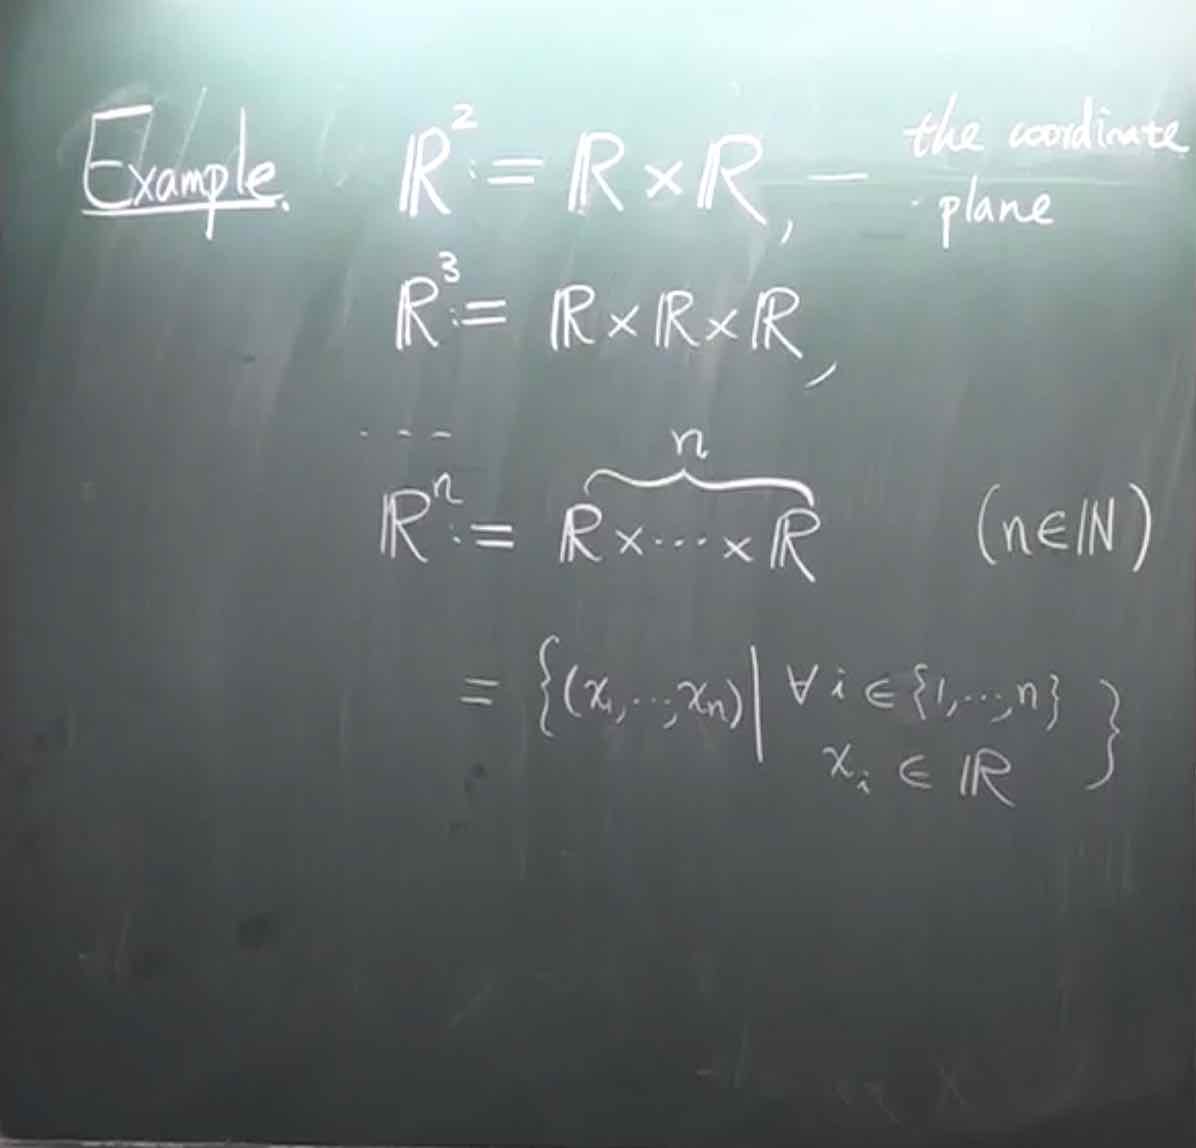 Example. ℝ² := ℝ × ℝ, — the coordinate plane
ℝ³ := ℝ × ℝ × ℝ,
----
n
ℝⁿ := ℝ × ··· × ℝ (n ∈ ℕ)
= {(x₁, ..., xₙ) | ∀ i ∈ {1, ..., n}
xᵢ ∈ ℝ }